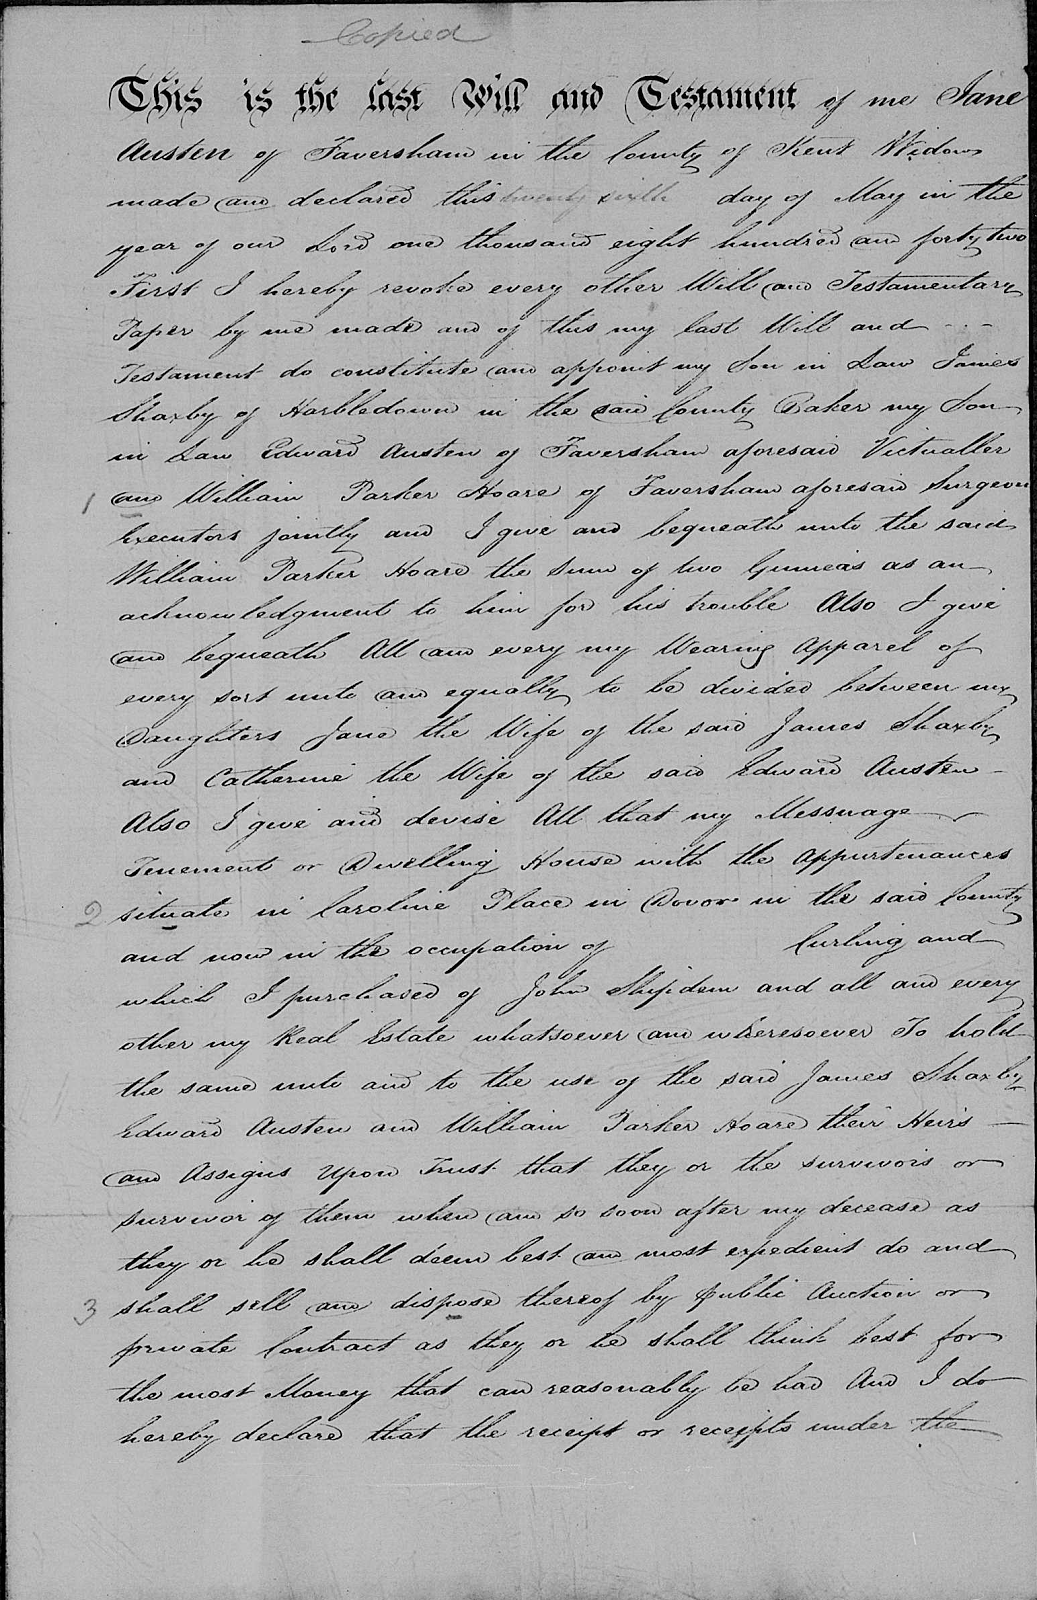 Copied
This is the last Will and Testament of me Jane
Austen of Faversham in the County of Kent Widow
made and declared this twenty sixth day of May in the
year of our Lord one thousand eight hundred and forty two
First I hereby revoke every other Will and Testamentary
Paper by me made and of this my last Will and - - -
Testament do constitute and appoint my Son in Law James
Shaxby of Harbledown in the said County Baker my Son
in Law Edward Austen of Faversham aforesaid Victualler
1 and William Parker Hoare of Faversham aforesaid Surgeon
Executors jointly and I give and bequeath unto the said
William Parker Hoare the Sum of two Guineas as an
acknowledgment to him for his trouble Also I give
and bequeath All and every my Wearing Apparel of
every sort unto and equally to be divided between my
Daughters Jane the Wife of the said James Shaxby
and Catherine the Wife of the said Edward Austen
Also I give and devise All that my Messuage
Tenement or Dwelling House with the Appurtenances
2 situate in Caroline Place in Dovor in the said County
and now in the occupation of Curling and
which I purchased of John Shipdem and all and every
other my Real Estate whatsoever and wheresoever To hold
the same unto and to the use of the said James Shaxby
Edward Austen and William Parker Hoare their Heirs
and Assigns Upon Trust that they or the survivors or
survivor of them when and so soon after my decease as
they or he shall deem best and most expedient do and
3 shall sell and dispose thereof by public Auction or
private Contract as they or he shall think best for
the most Money that can reasonably be had And I do
hereby declare that the receipt or receipts under the